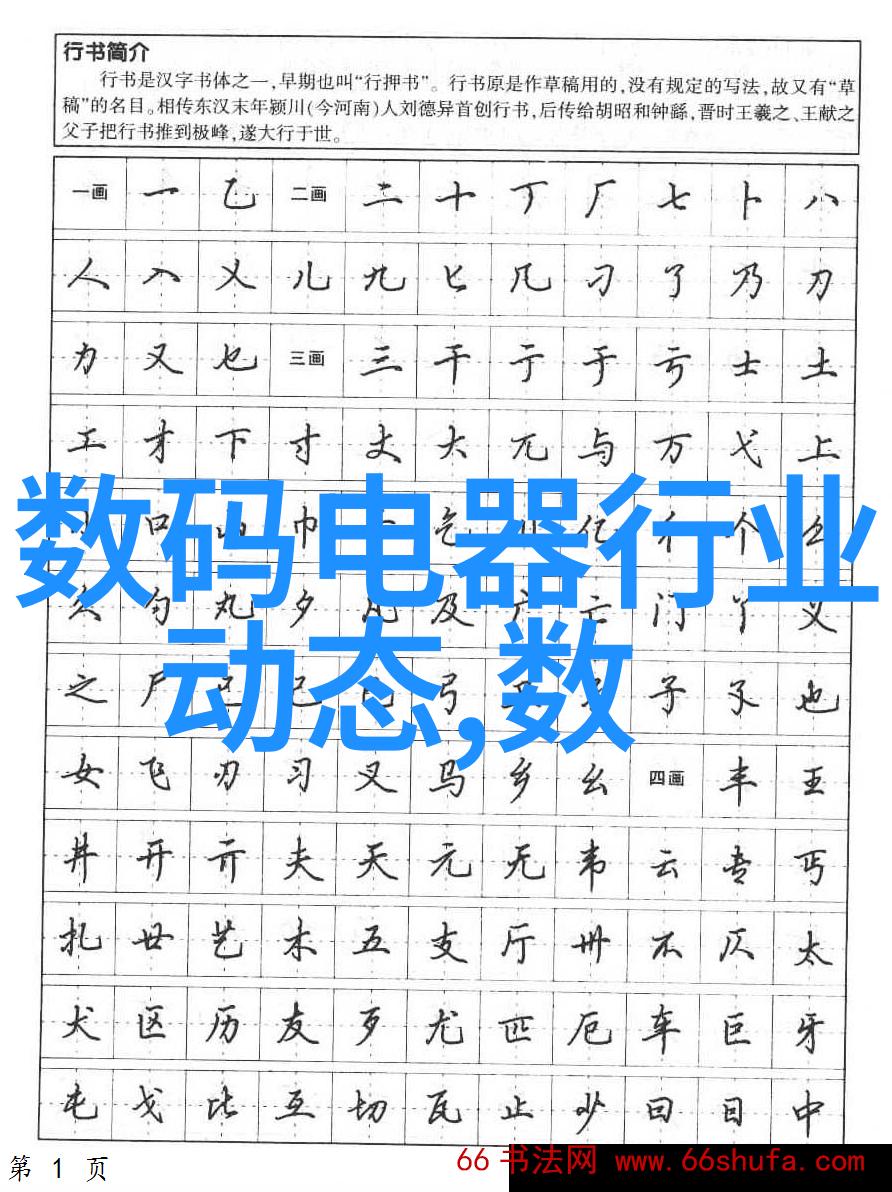 行书简介
行书是汉字书体之一,早期也叫“行押书”。行书原是作草稿用的,没有规定的写法,故又有“草
稿”的名目。相传东汉末年颍川(今河南)人刘德昇首创行书,后传给胡昭和钟繇,晋时王羲之、王献之
父子把行书推到极峰,遂大行于世。
一画 一 乙 二画 二 十 丁 厂 七 卜 八
人 入 乂 儿 九 匕 几 刁 了 乃 刀
力 又 乜 三画 三 干 亍 于 亏 士 土
工 才 下 寸 丈 大 兀 与 万 弋 上
口 山 巾 乞 亿 彳 个 么
数码电器行业
久 勺 丸 夕 凡 及 广 亡 门 丫 义
动态,数
之 尸 已 弓 子 孓 也
女 飞 刃 习 叉 马 乡 幺 四画 丰 王
井 开 亓 夫 天 元 无 韦 云 专 丐
扎 廿 艺 木 五 支 厅 卅 不 仄 太
犬 区 历 友 歹 尤 匹 厄 车 巨 牙
屯 戈 比 互 切 瓦 止 少 曰 日 中
第 1 页
66书法网 www.66shufa.com